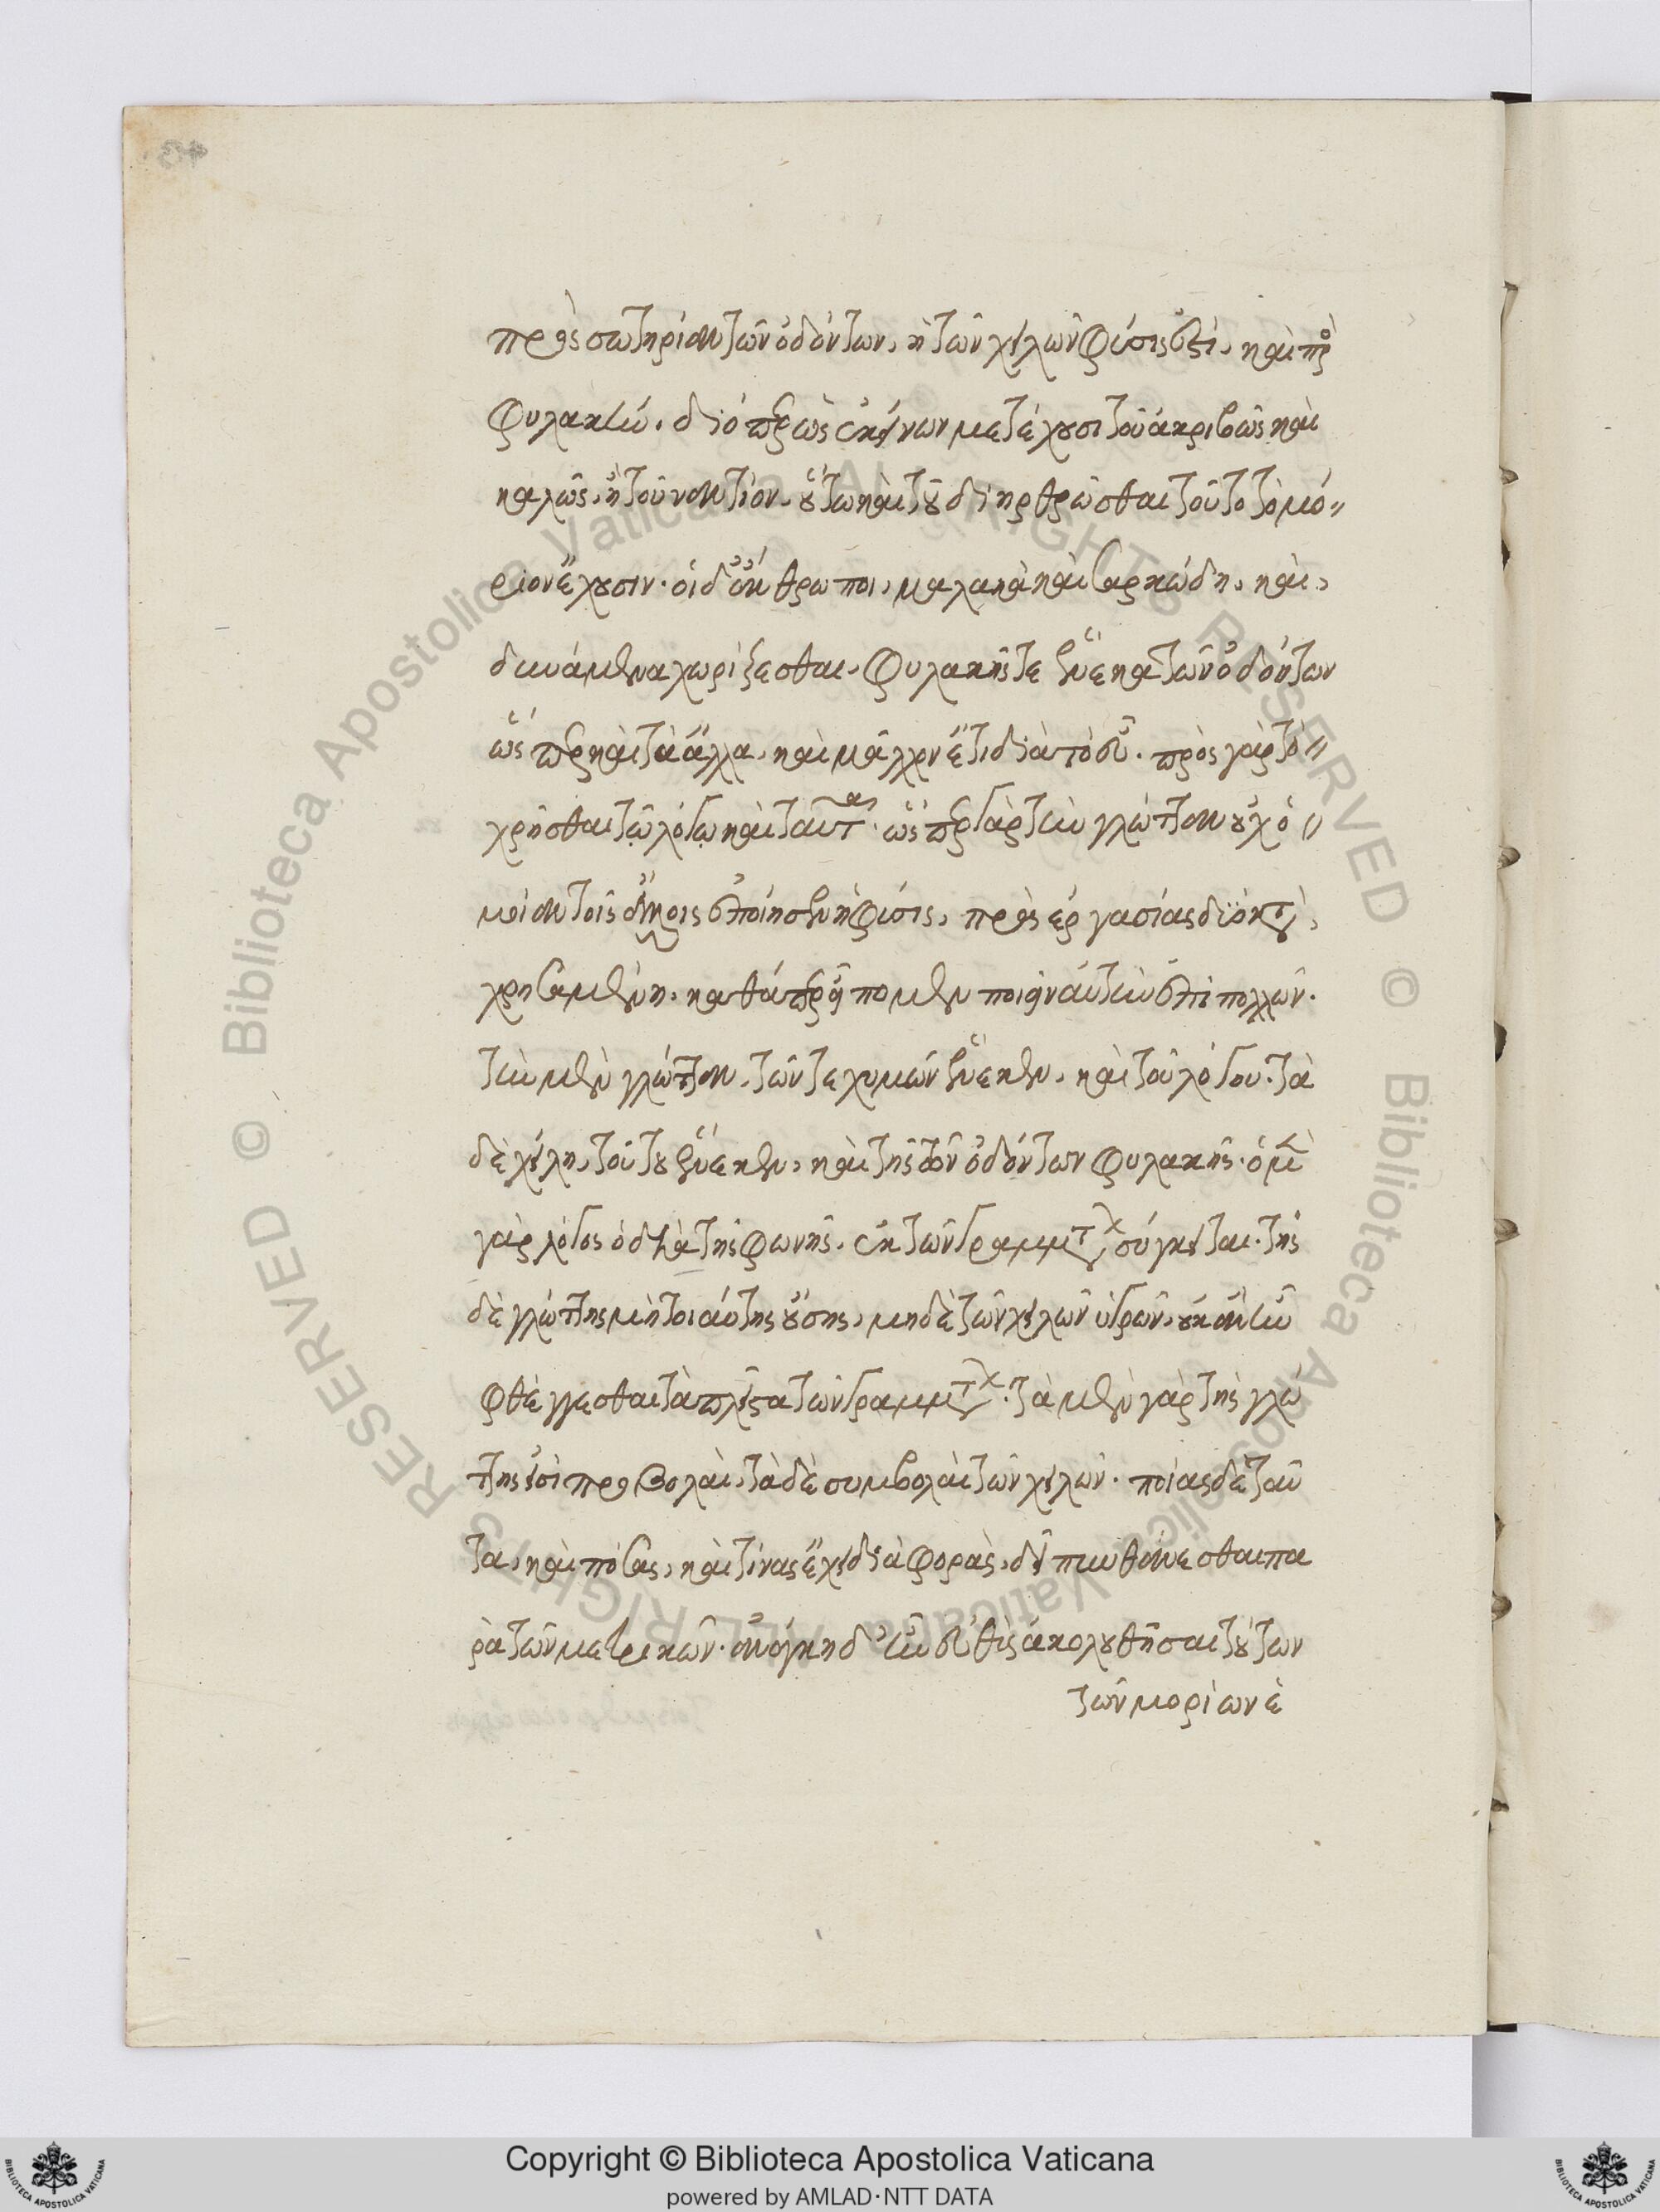 πρὸς σωτηρίαν τῶν ὀδόντων, ἡ τῶν χειλῶν φύσις ἐστὶ, καὶ πρὸ
φυλακήν. διόπερ ὡς ἐκείνων μετέχουσι τοῦ ἀκριβῶς καὶ
καλῶς, ἢ τοὐναντίον. οὕτω καὶ τοῦ διηρθρῶσθαι τοῦτο τὸ μό〃
ριον ἔχουσιν. οἱ δ' ἄνθρωποι, μαλακὰ καὶ σαρκώδη, καὶ,
δυνάμενα χωρίζεσθαι. φυλακῆς τε ἕνεκα τῶν ὀδόντων
ὥσπερ καὶ τὰ ἄλλα, καὶ μᾶλλον ἔτι διὰ τὸ εὖ. πρὸς γὰρ τὸ〃
χρῆσθαι τῷ λόγῳ καὶ ταῦτα. ὥσπερ γὰρ τὴν γλῶτταν οὐχ ὁ〃
μοίαν τοῖς ἄλλοις ἐποίησεν ἡ φύσις, πρὸς ἐργασίας δύο κατα,
χρησαμένη. καθάπερ εἴπομεν ποιεῖν αὐτὴν ἐπὶ πολλῶν.
τὴν μὲν γλῶτταν, τῶν τε χυμῶν ἕνεκεν, καὶ τοῦ λόγου. τὰ
δὲ χείλη, τούτου ἕνεκεν, καὶ τῆς τῶν ὀδόντων φυλακῆς. ὁ μὲν
γὰρ λόγος ὁ διὰ τῆς φωνῆς, ἐκ τῶν γραμμάτων σύγκειται. τῆς
δὲ γλώττης μὴ τοιαύτης οὔσης, μηδὲ τῶν χειλῶν ὑγρῶν, οὐκ ἂν ἦν
φθέγγεσθαι τὰ πλεῖστα τῶν γραμμάτων. τὰ μὲν γὰρ τῆς γλώ
ττης εἰσὶ προσβολαὶ, τὰ δὲ συμβολαὶ τῶν χειλῶν. ποίας δὲ ταῦ
τα, καὶ πόσας, καὶ τίνας ἔχει διαφορὰς, δεῖ πυνθάνεσθαι πα
ρὰ τῶν μετρικῶν. ἀνάγκη δ' ἦν εὐθὺς ἀκολουθῆσαι τούτων
τῶν μορίων ἑ